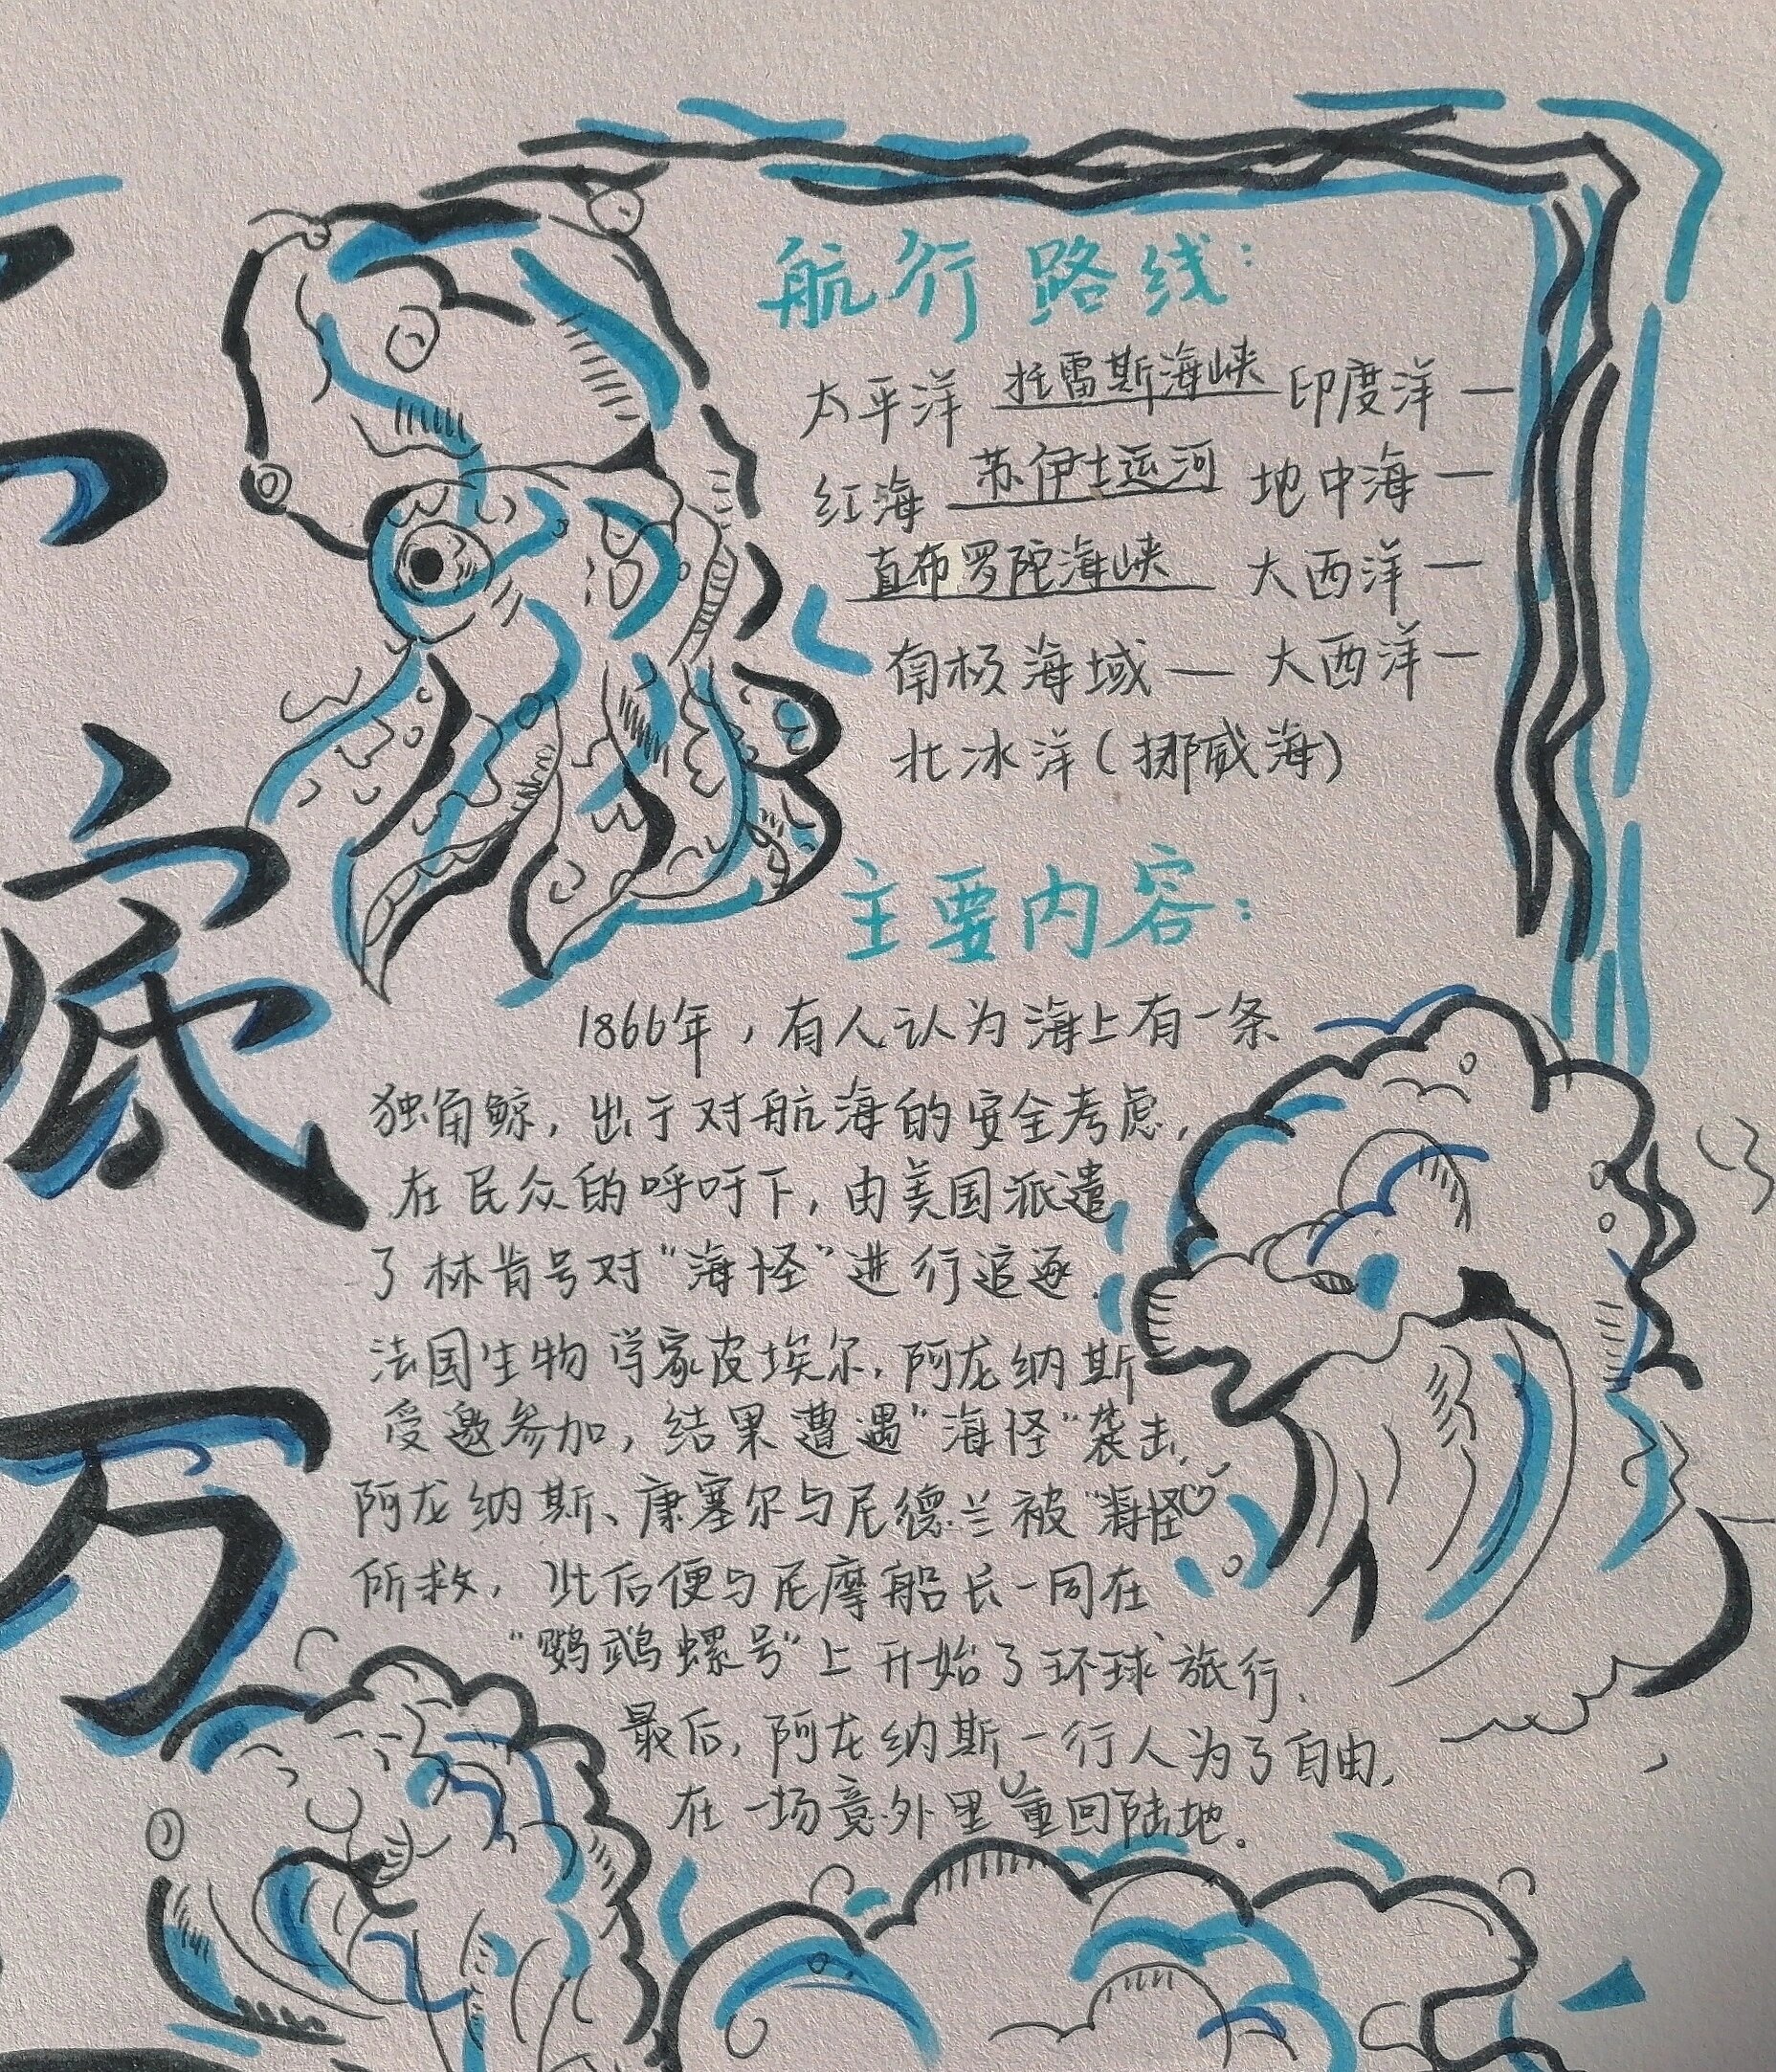 底
万
航行路线：
太平洋 托雷斯海峡 印度洋—
红海 苏伊士运河 地中海—
直布罗陀海峡 大西洋—
南极海域—大西洋—
北冰洋（挪威海）
主要内容：
1866年，有人认为海上有一条
独角鲸，出于对航海的安全考虑，
在民众的呼吁下，由美国派遣
了林肯号对“海怪”进行追逐.
法国生物学家皮埃尔.阿龙纳斯
受邀参加，结果遭遇“海怪”袭击.
阿龙纳斯、康塞尔与尼德兰被“海怪”
所救，此后便与尼摩船长一同在
“鹦鹉螺号”上开始了环球旅行.
最后，阿龙纳斯一行人为了自由，
在一场意外里重回陆地.